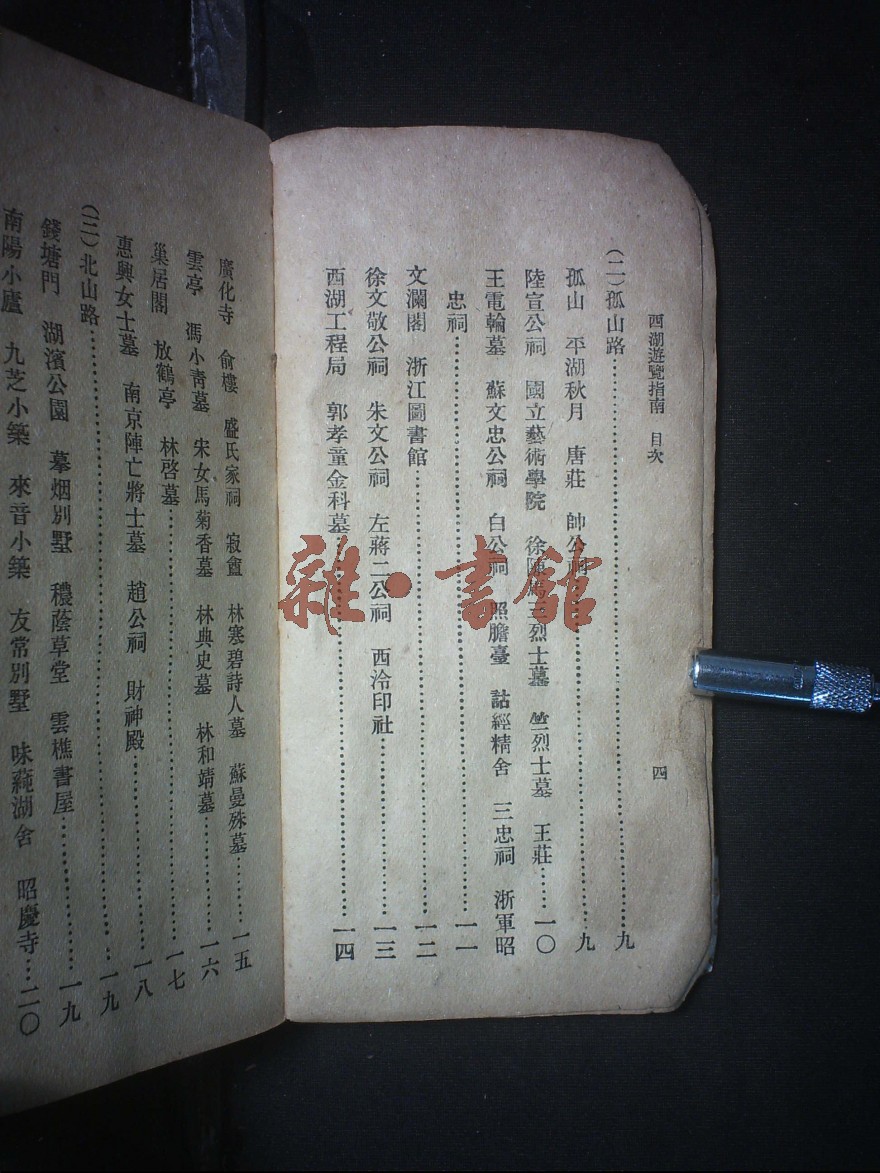 西湖遊覽指南 目次
四
(二)孤山路……九
孤山 平湖秋月 唐莊 帥公祠……九
陸宣公祠 國立藝術學院 徐陳馬三烈士墓 竺烈士墓 王莊……一〇
王電輪墓 蘇文忠公祠 白公祠 照膽臺 詁經精舍 三忠祠 浙軍昭
忠祠……一一
文瀾閣 浙江圖書館……一二
徐文敬公祠 朱文公祠 左蔣二公祠 西泠印社……一三
西湖工程局 郭孝童金科墓……一四
廣化寺 俞樓 盛氏家祠 寂盦 林寒碧詩人墓 蘇曼殊墓……一五
雲亭 馮小靑墓 宋女馬菊香墓 林典史墓 林和靖墓……一六
巢居閣 放鶴亭 林啓墓……一七
惠興女士墓 南京陣亡將士墓 趙公祠 財神殿……一八
(三)北山路……一九
錢塘門 湖濱公園 摹烟別墅 穠蔭草堂 雲樵書屋……一九
南陽小廬 九芝小築 來音小築 友常別墅 味蒓湖舍 昭慶寺…二〇
雜·書館